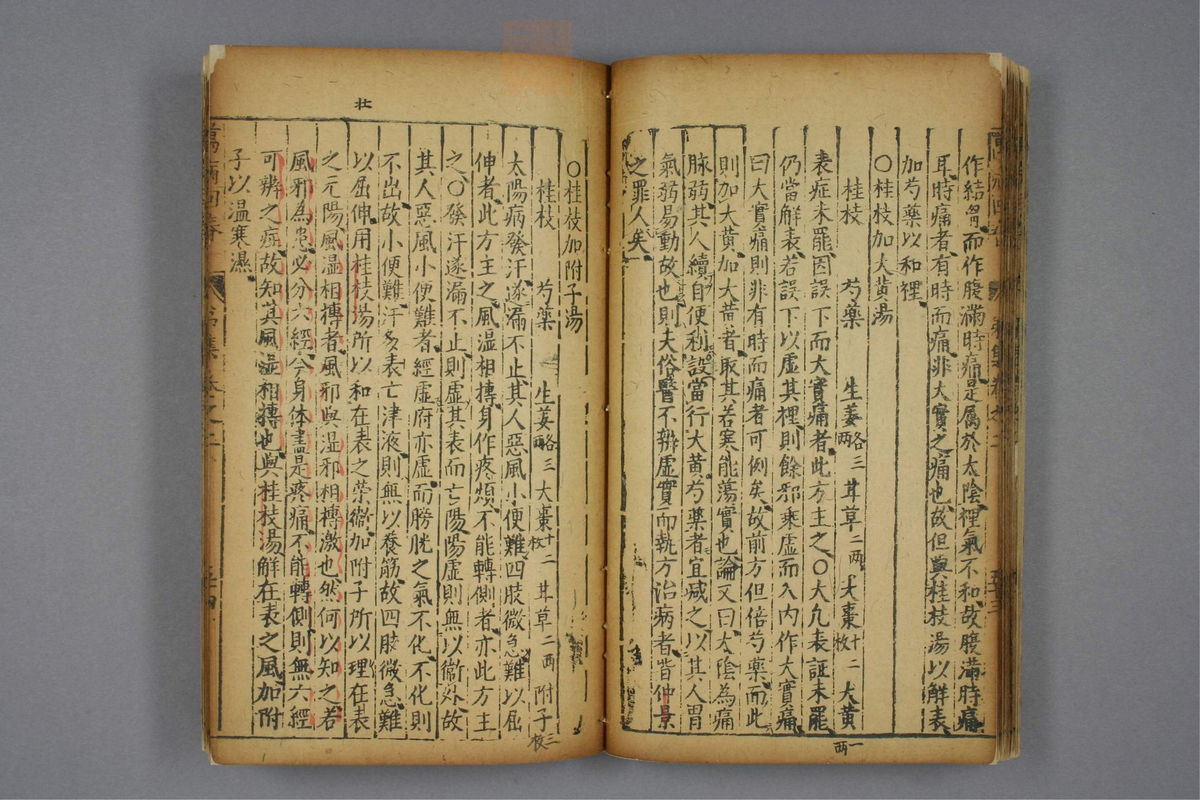 作結胷而作腹滿時痛是屬於太陰裡氣不和故腹滿時痛
耳時痛者有時而痛非大實之痛也故但與桂枝湯以解表
加芍藥以和裡
〇桂枝加大黃湯
桂枝 芍藥 生姜各三兩 甘草二兩 大棗十二枚 大黃一兩
表症未罷因誤下而大實痛者此方主之〇大凡表証未罷
仍當解表若誤下以虛其裡則餘邪乘虛而入內作大實痛
曰大實痛則非有時而痛者可例矣故前方但倍芍藥而此
則加大黃加大黃者取其若寒能蕩實也論又曰太陰為痛
脉弱其人續自便利設當行大黃芍藥者宜减之以其人胃
氣弱易動故也則夫俗醫不辨虛實而執方治病者皆仲景
之罪人矣
〇桂枝加附子湯
桂枝 芍藥 生姜各三兩 大棗十二枚 甘草二兩 附子三枚
太陽病發汗遂漏不止其人惡風小便難四肢微急難以屈
伸者此方主之風湿相摶身作疼煩不能轉側者亦此方主
之〇發汗遂漏不止則虛其表而亡陽陽虛則無以衞外故
其人惡風小便難者經虛府亦虛而膀胱之氣不化不化則
不出故小便難汗多表亡津液則無以養筋故四肢微急難
以屈伸用桂枝湯所以和在表之榮衞加附子所以理在表
之元陽風湿相摶者風邪與湿邪相摶激也然何以知之若
風邪為患必分六經今身体盡是疼痛不能轉側則無六經
可辨之症故知其風湿相摶也與桂枝湯解在表之風加附
子以温寒濕
壮